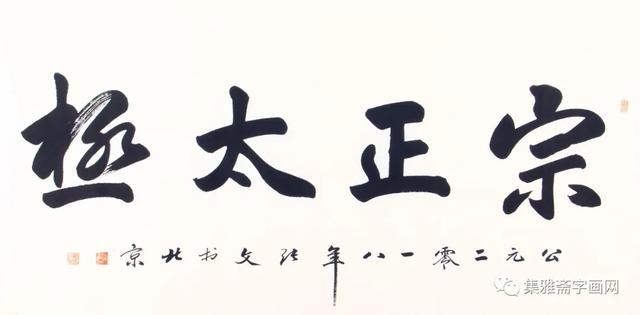 宗正太極
公元二零一八年张文书北京
集雅斋字画网